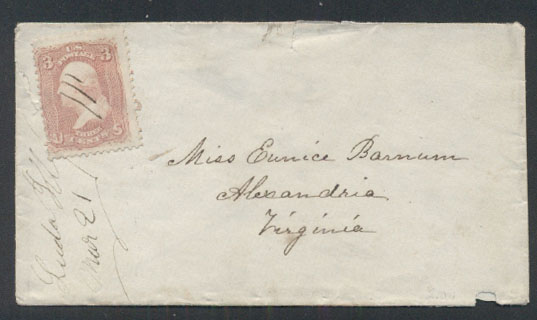 3 U.S. POSTAGE 3
U THREE CENTS S
Miss Eunice Barnum
Alexandria
Virginia
Mar 21